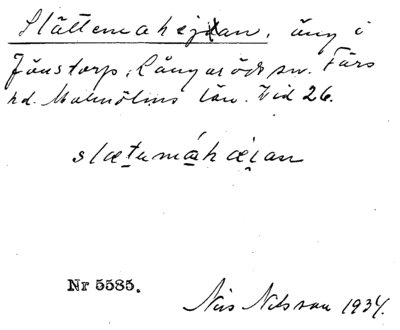 Slättemahejan, äng i
Jönstorp, Långaröds sn. Färs
hd. Malmöhus län. Vid 26.
slætumáhæjan
Nr 5585.
Nils Nilsson 1934.